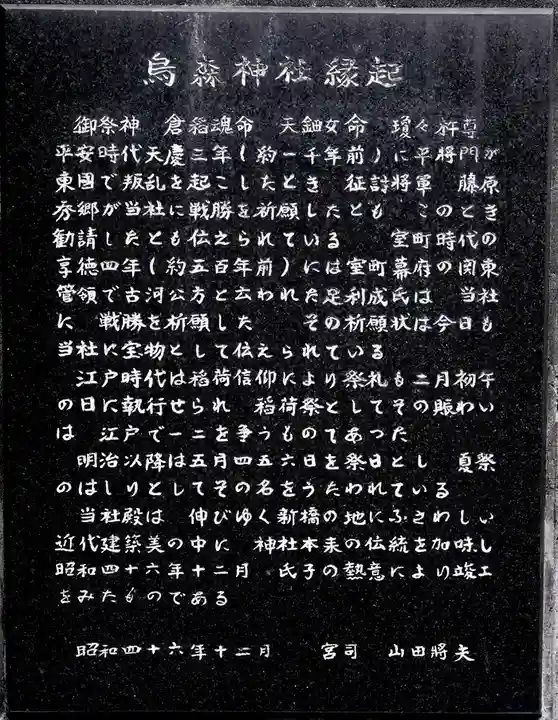 烏森神社縁起
御祭神 倉稲魂命 天鈿女命 瓊々杵尊
平安時代天慶三年(約一千年前)に平将門が
東國で叛乱を起こしたとき 征討将軍 藤原
秀郷が当社に戦勝を祈願したとも このとき
勧請したとも伝えられている 室町時代の
享徳四年(約五百年前)には室町幕府の関東
管領で古河公方と云われた足利成氏は 当社
に 戦勝を祈願した その祈願状は今日も
当社に宝物として伝えられている
江戸時代は稲荷信仰により祭礼も二月初午
の日に執行せられ 稲荷祭としてその賑わい
は 江戸で一二を争うものであつた
明治以降は五月四五六日を祭日とし 夏祭
のはしりとしてその名をうたわれている
当社殿は 伸びゆく新橋の地にふさわしい
近代建築美の中に 神社本来の伝統を加味し
昭和四十六年十二月 氏子の熱意により竣工
をみたものである
昭和四十六年十二月 宮司 山田將夫